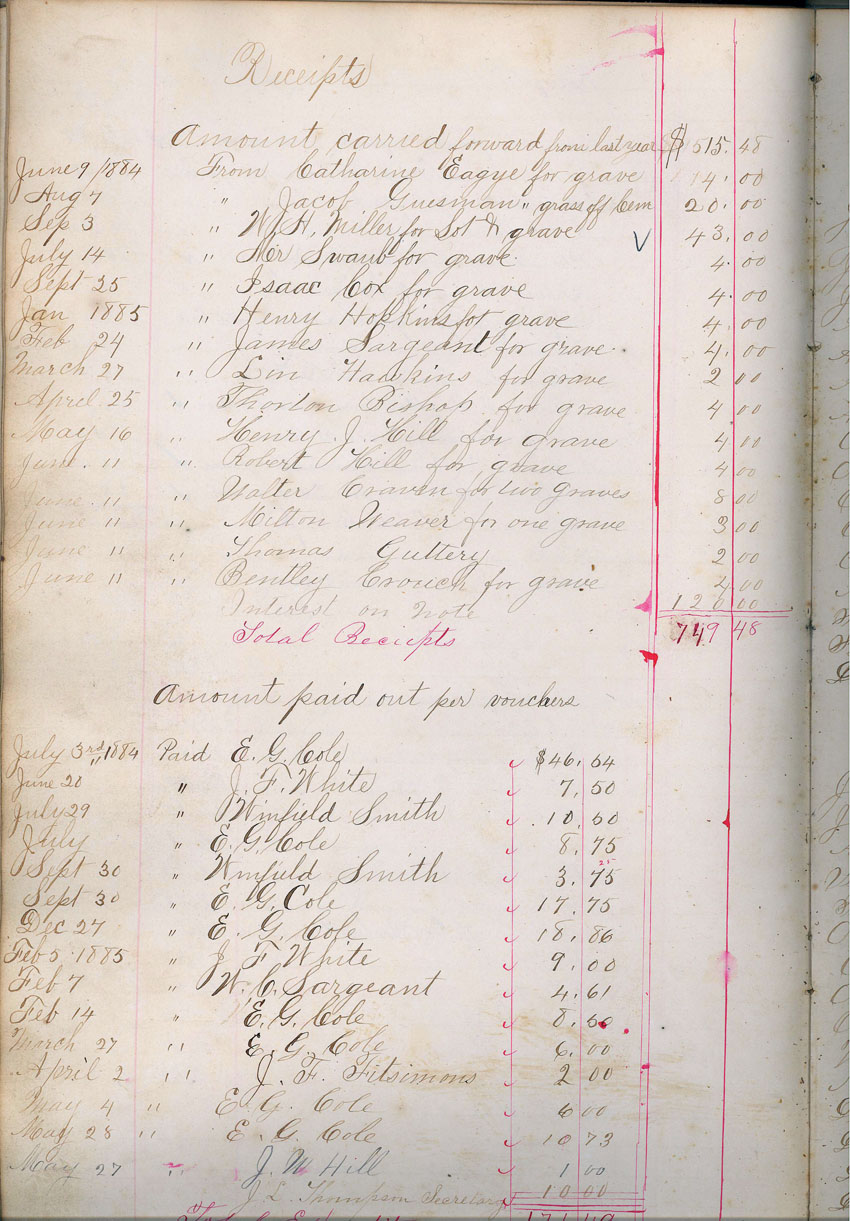 Receipts
Amount carried forward from last year $ 515. 48
June 9 1884 From Catharine Eagye for grave 14. 00
Aug 7 " Jacob Guesman " grass off Cem 20. 00
Sep 3 " W. H. Miller for Lot & grave √ 43. 00
July 14 " Mr Swaub for grave 4. 00
Sept 25 " Isaac Cox for grave 4. 00
Jan 1885 " Henry Hopkins for grave 4. 00
Feb 24 " James Sargeant for grave 4. 00
March 27 " Lin Hawkins for grave 2 00
April 25 " Thorton Bishop for grave 4 00
May 16 " Henry J. Hill for grave 4 00
June 11 " Robert Hill for grave 4 00
June 11 " Walter Craven for two graves 8 00
June 11 " Milton Weaver for one grave 3 00
June 11 " Thomas Guttery 2 00
June 11 " Bentley Crouch for grave 4 00
Interest on Note 120 00
Total Receipts 749 48
Amount paid out per vouchers
July 3rd 1884 Paid E. G. Cole $46. 64
June 20 " J. F. White 7. 50
July 29 " Winfield Smith 10. 50
July " E. G. Cole 8. 75
Sept 30 " Winfield Smith 3. 75 25
Sept 30 " E. G. Cole 17. 75
Dec 27 " E. G. Cole 18. 86
Feb 5 1885 " J F White 9. 00
Feb 7 " W. C. Sargeant 4. 61
Feb 14 " E. G. Cole 8. 50
March 27 " E. G. Cole 6. 00
April 2 " J. F. Fitsimons 2 00
May 4 " E. G. Cole 6 00
May 28 " E. G. Cole 10 73
May 27 " J. W Hill 1 00
J. L. Thompson Secretary 10 00